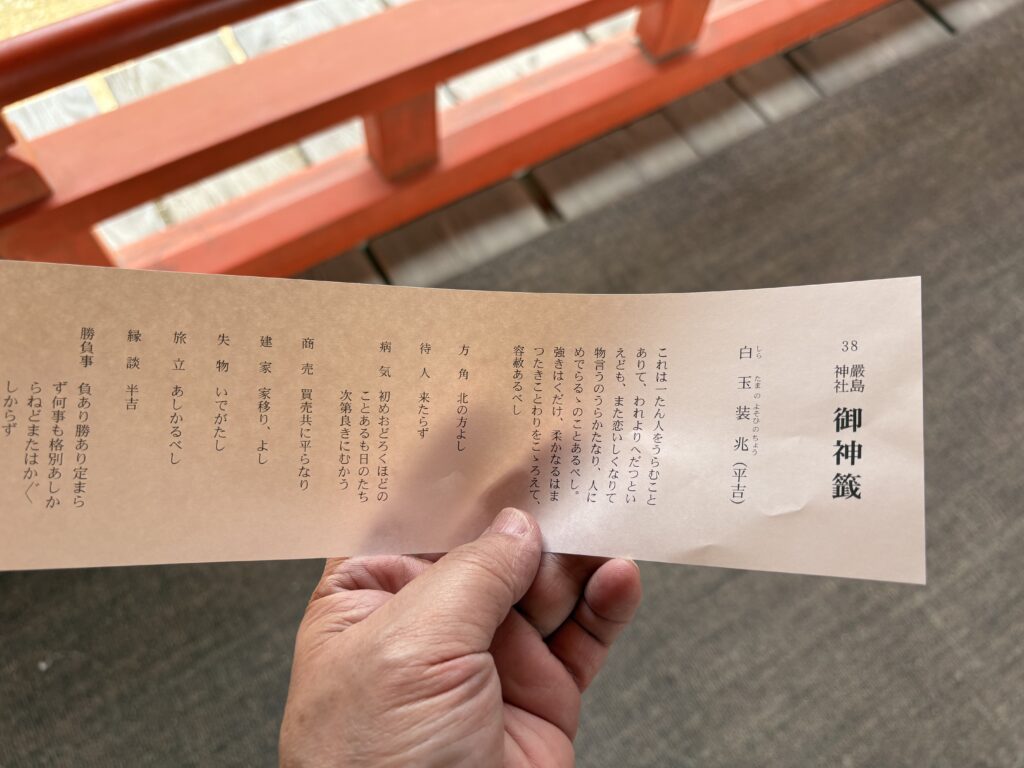 38
厳島神社
御神籤
白玉装兆（平吉）
しら たまの よそひのちよう
これは一たん人をうらむこと
ありて、われよりへだつとい
えども、また恋いしくなりて
物言うのうらかたなり、人に
めでらるゝのことあるべし。
強きはくだけ、柔かなるはま
つたきことわりをこゝろえて、
容赦あるべし
方角 北の方よし
待人 来たらず
病気 初めおどろくほどの
ことあるも日のたち
次第良きにむかう
商売 買売共に平らなり
建家 家移り、よし
失物 いでがたし
旅立 あしかるべし
縁談 半吉
勝負事 負あり勝あり定まら
ず何事も格別あしか
らねどまたはか〲
しからず